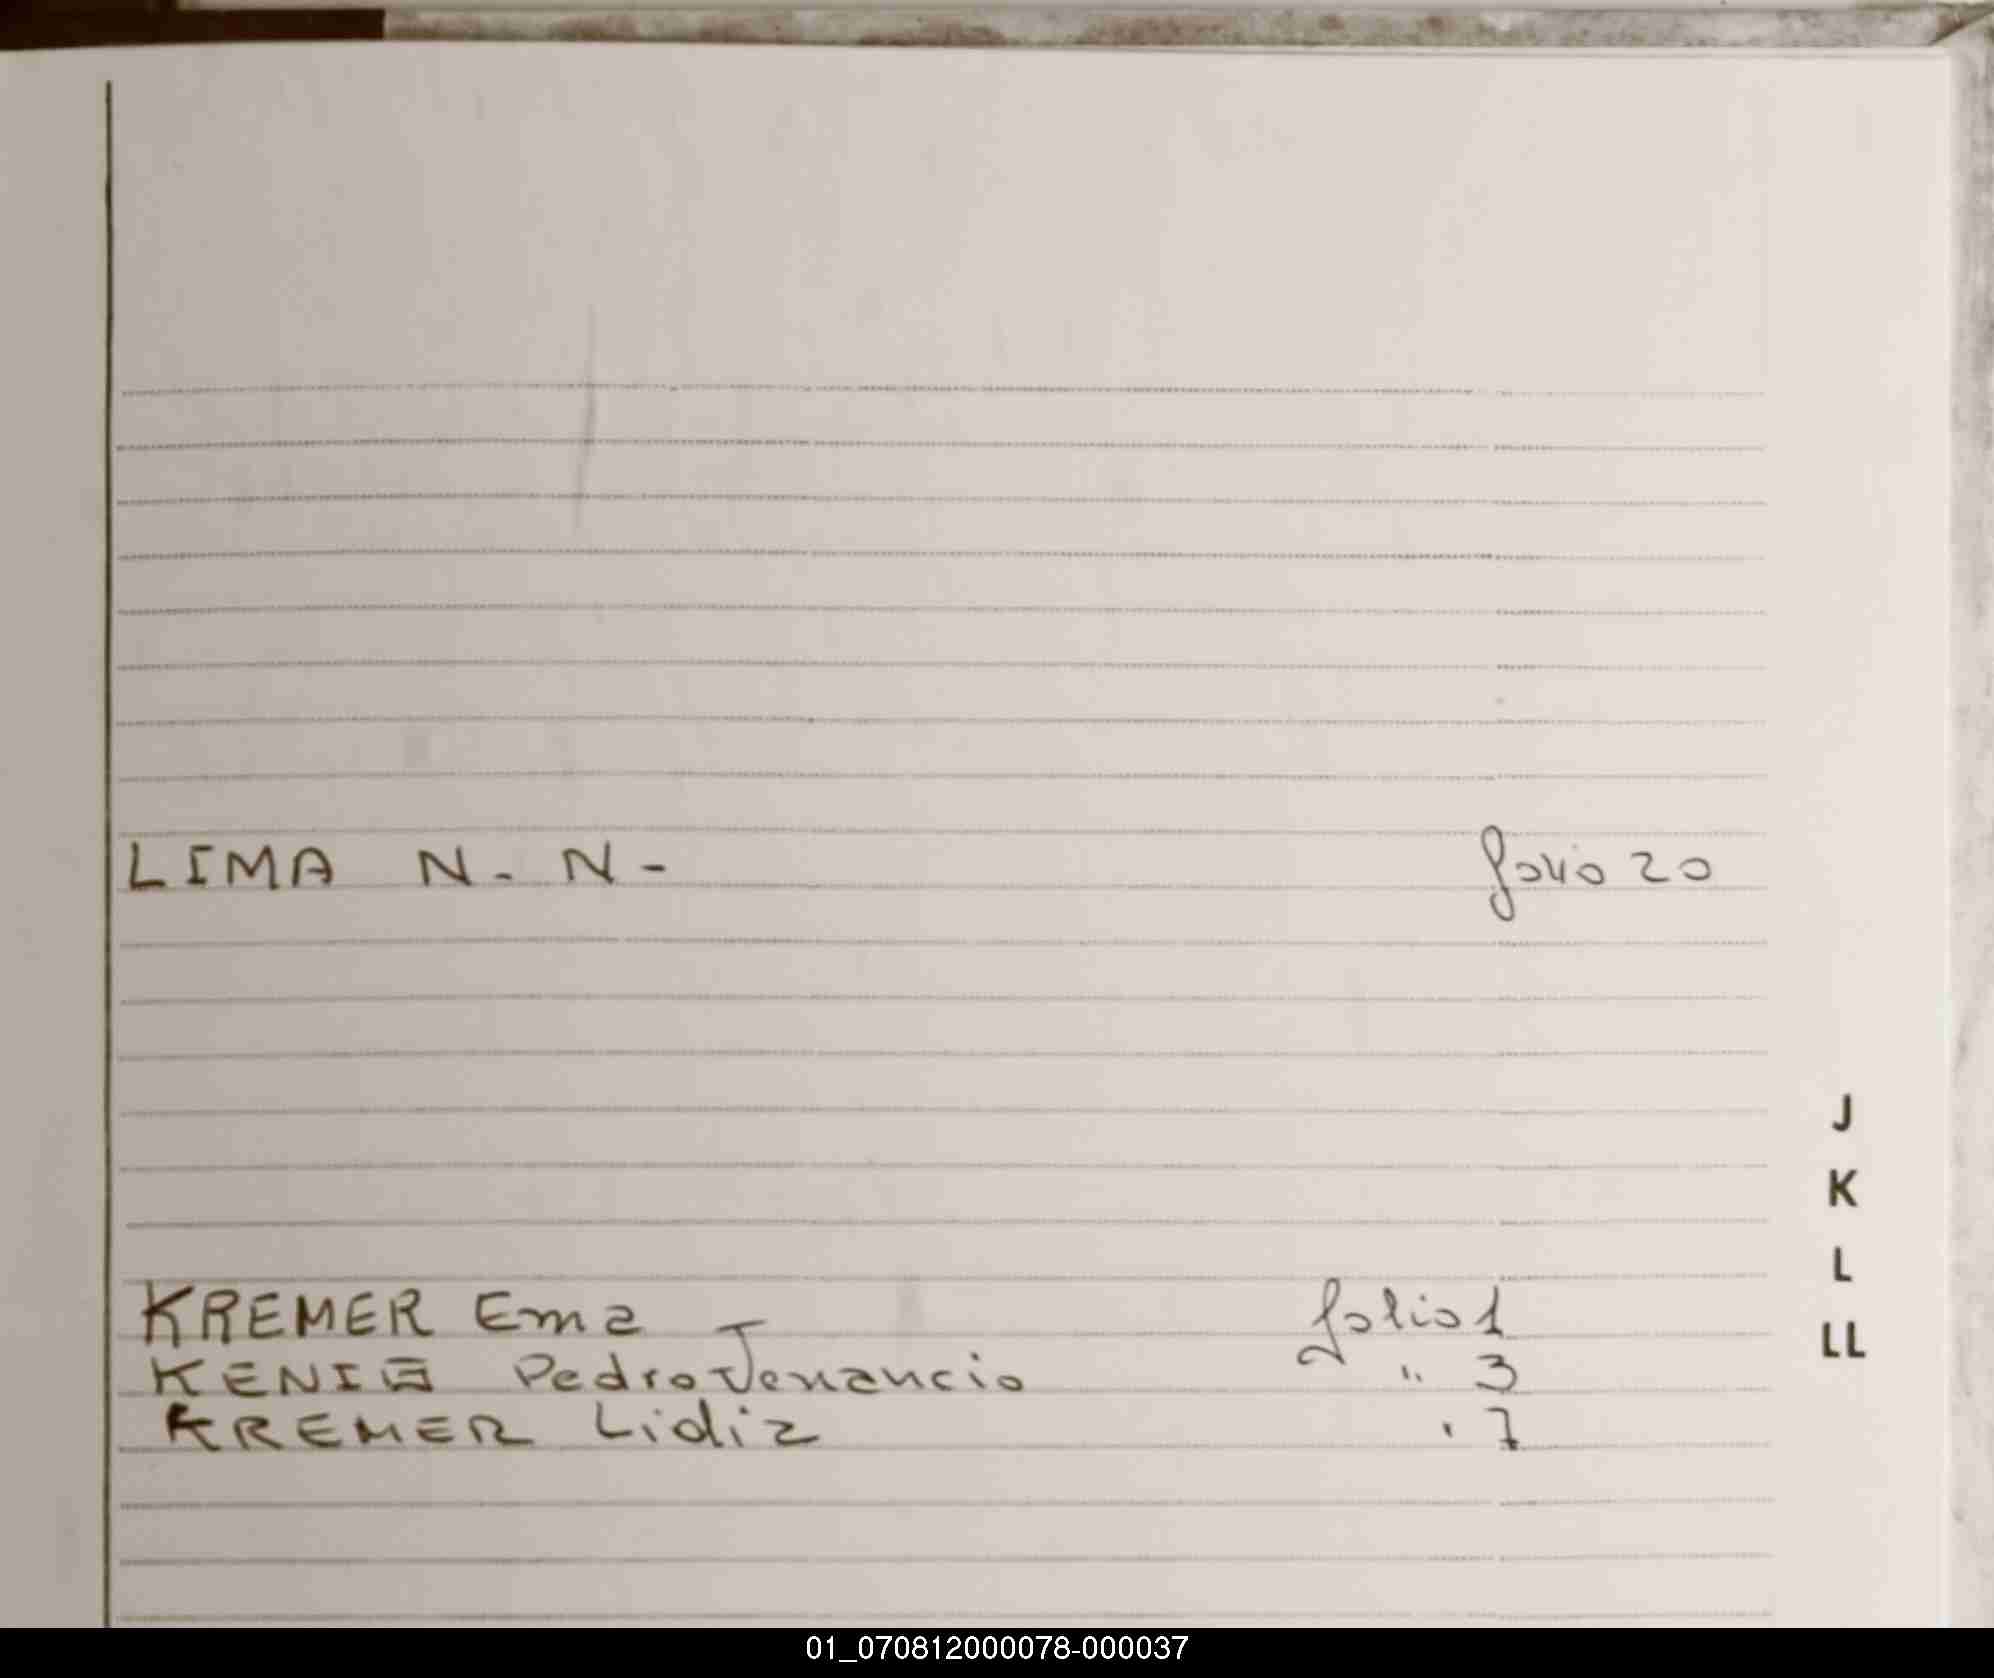 LIMA N. N- folio 20
J
K
L
KREMER Ema folio 1
LL
Pedro Venancio " 3
KREMER Lidia " 7
01_070812000078-000037